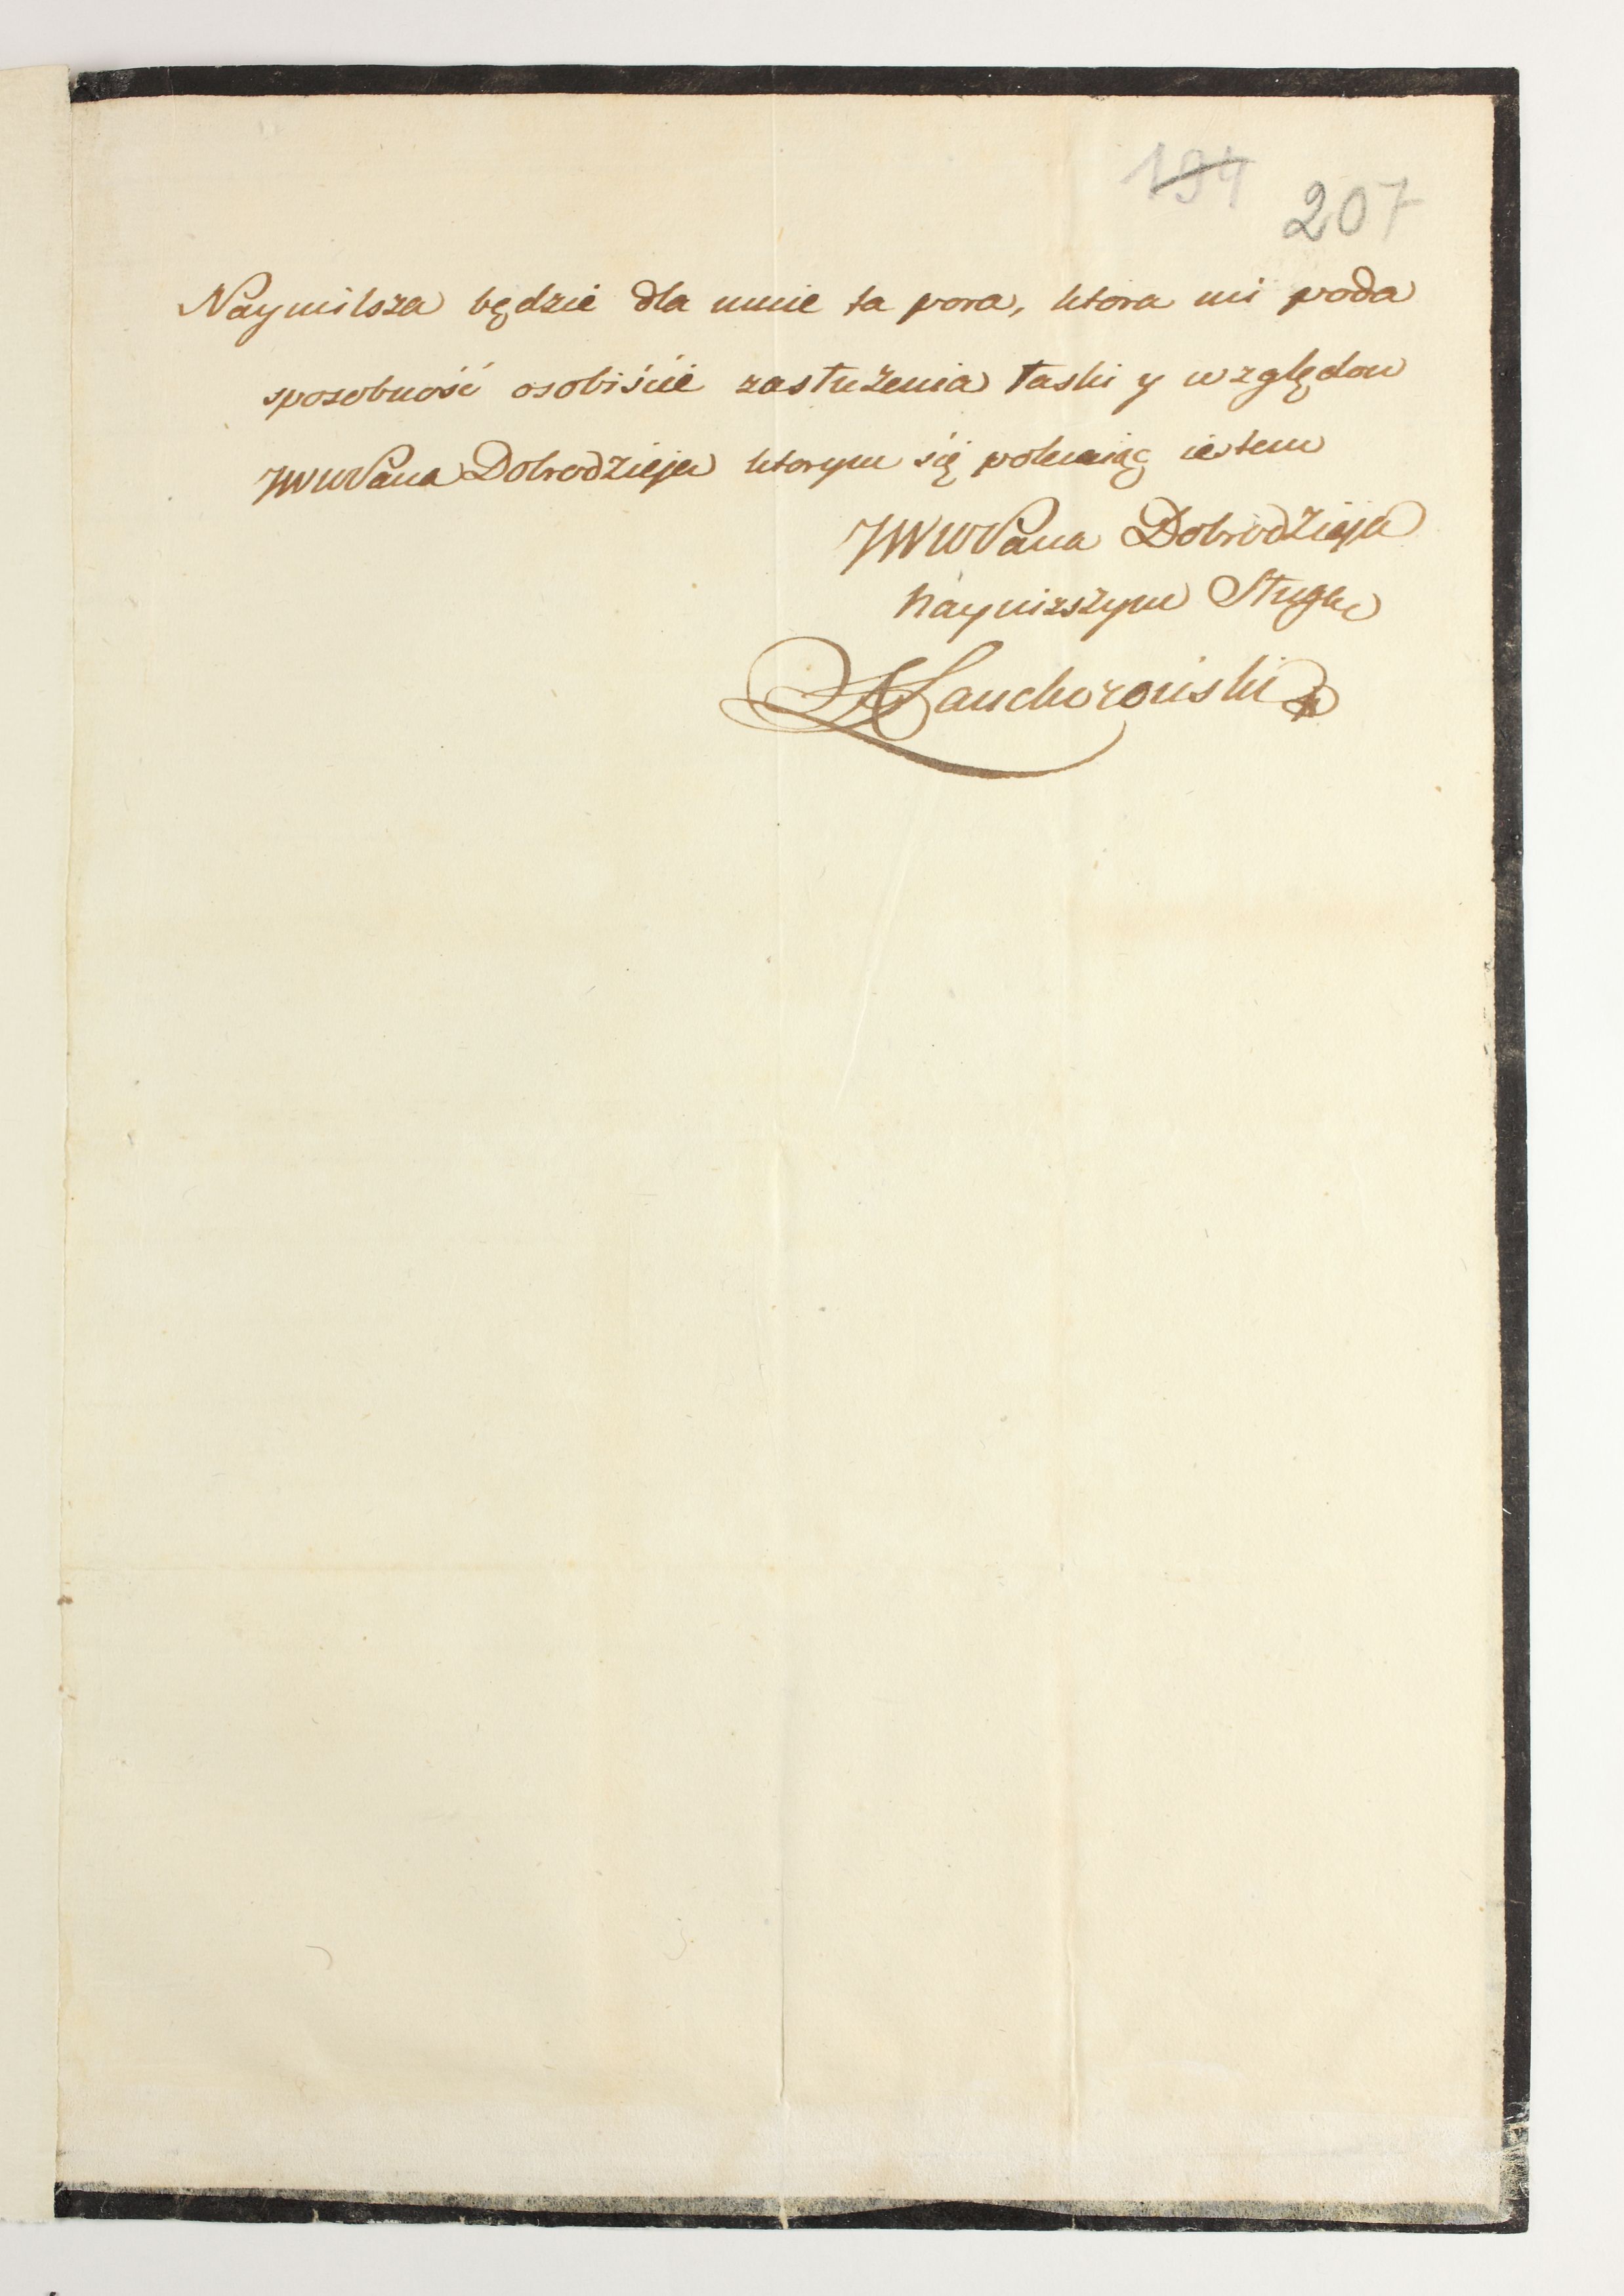 194 207
Naymilsza będzie dla mnie ta pora, ktora mi poda
sposobność osobiście zasłużenia łaski y względow
JWWPana Dobrodzieja ktorym się polecaiąc iestem
JWWPana Dobrodzieja
nayniższym Sługą